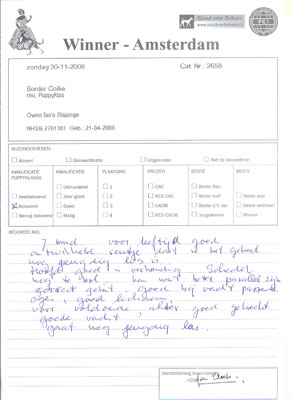 Raad van Beheer
Winner - Amsterdam
zondag 30-11-2008
Cat. Nr.: 2658
Border Collie
reu, Puppyklas
NHSB 2701301 Geb.: 21-04-2008
BIJZONDERHEDEN:
Absent
Diskwalificatie
Uitgezonden
Niet te beoordelen
KWALIFICATIE PUPPYKLASSE
KWALIFICATIE
PLAATSING
PRIJZEN
Veelbelovend
Belovend
Weinig belovend
Uitmuntend
Zeer goed
Goed
Matig
1
2
3
4
CAC
RES CAC
CACIB
RES CACIB
Beste Reu
Beste teef
Beste v/h ras
Jeugdwinner
Beste pup
Beste veteraan
Winner
BEOORDELING:
7 mnd voor leeftijd goed
ontwikkelde reutje, is in het geheel
nog jeugdig los is.
Hoofd goed in verhouding. Schedel
nog te wat parallel zijn
correct gebit, goed bij vacht passende
ogen, goed
voor voldoende, achter goed gehoekt
goede vacht,
gaat nog jeugdig los.
Handtekening Keurmeester: